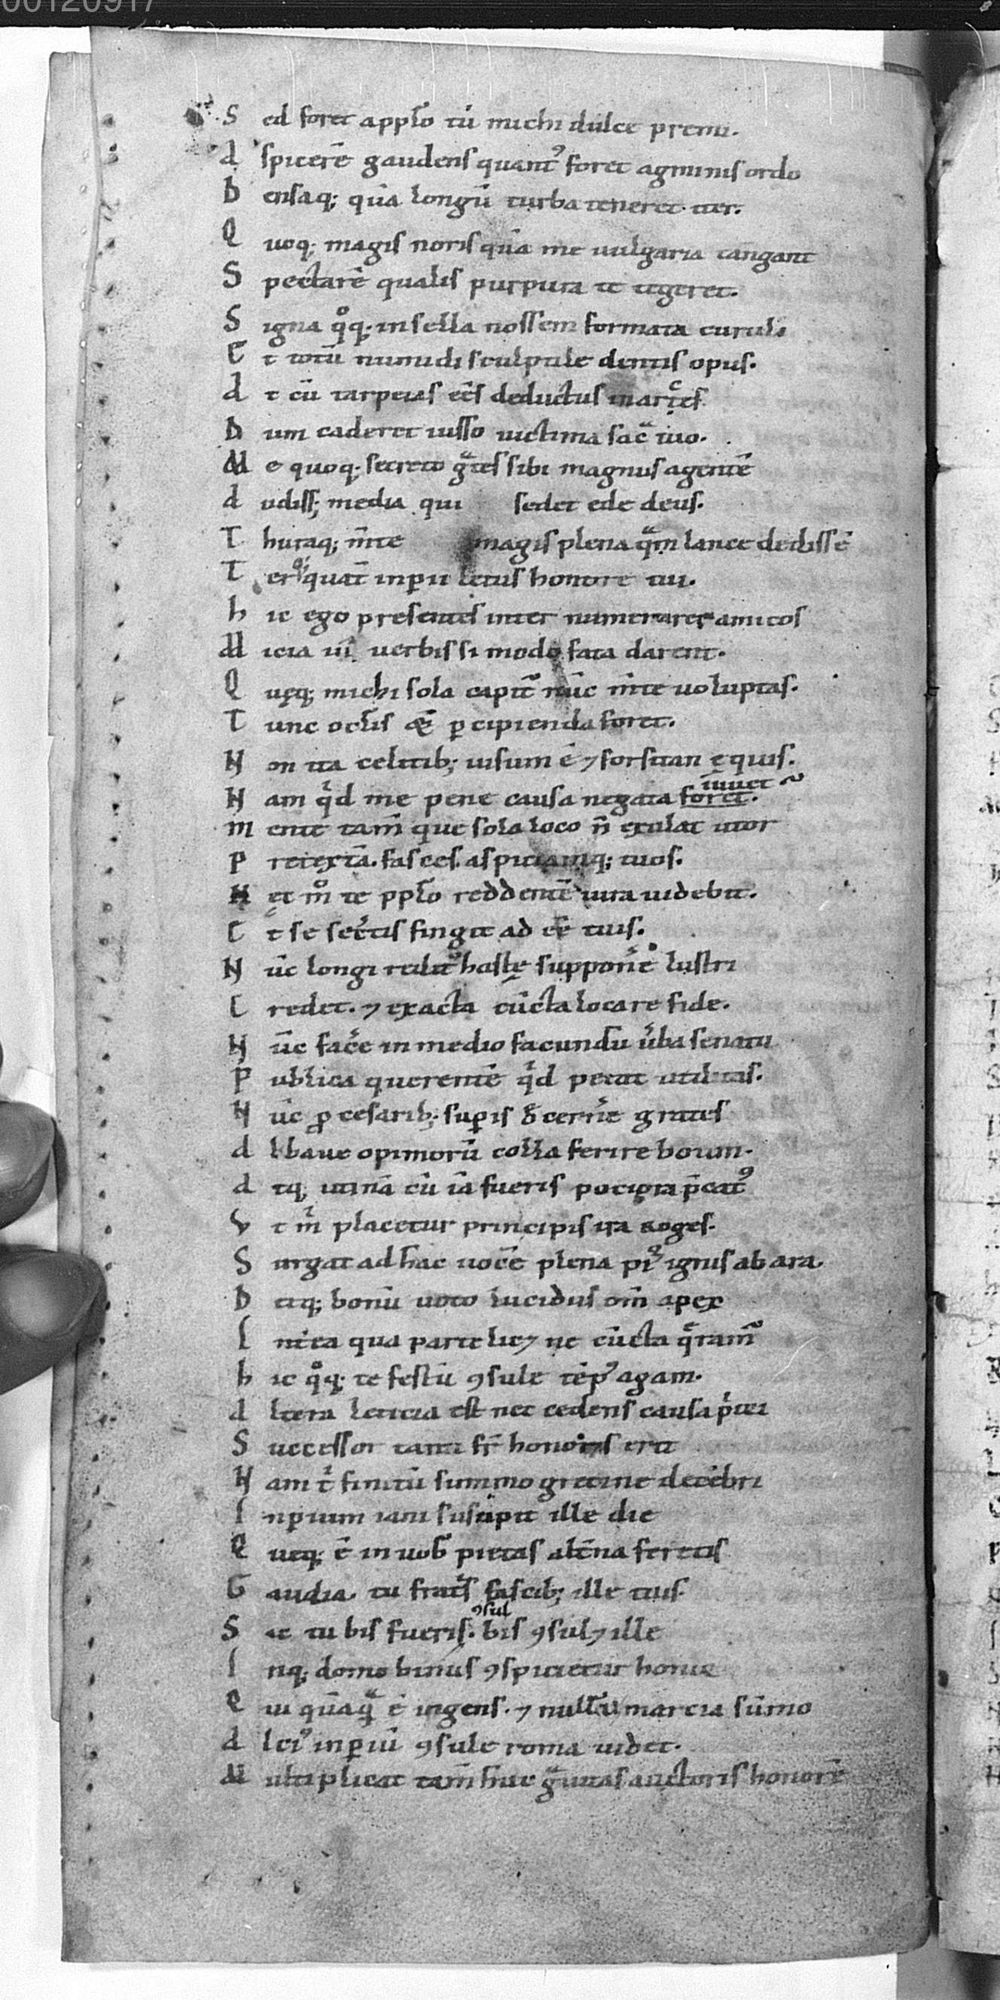 00120917
S ed foret appl̄o tū michi dulce premi.
A spicerē gaudens quant᷒ foret agminis ordo
D ensaq; q̄a longū turba teneret iter.
Q uoq; magis noris q̄a me uulgaria tangant
S pectarē qualis purpura te tegeret.
S igna qͦq; in sella nossem formata curuli
E t totū numidi sculptile dentis opus.
A t cū tarpeias eēs deductus in arces
D um caderet iusso uictima sac̄ tuo.
M e quoq; secreto gͣtes sibi magnus agentē
A udiss; media qui sedet ede deus.
T huraq; m̄te magis plena qͣm lance dedissē
T er quat̄ inperii letus honore tui.
h ic ego presentes inter numerarer amicos
M icia ui uerbis si modo fata darent.
Q ueq; michi sola capit᷒ nūc m̄te uoluptas.
T unc ocl̄is & percipienda foret.
N on ita celitib; uisum ē ⁊ forsitan equis.
N am qͥd me pene causa negata foret. iuuet
m ente tam̄ que sola loco n̄ exulat utor
P retextā. fasces. aspiciamq; tuos.
H ęc m̊ te ppl̄o reddentē iura uidebit.
E t se secr̄tis fingit ad eē tuis.
N ūc longi reditꝰ hastę supponē lustri
C redet. ⁊ exacta cūcta locare fide.
N ūc fac̄e in medio facundū ūba senatu
P ublica querentē qͥd petat utilitas.
N ūc ꝓ cesarib; superis đcern̄e grates
A lbaue opimorū colla ferire boum.
A tq; utinā cū iā fueris potiora p̄cat᷒
V t m̄ placetur principis ira roges.
S urgat ad hac uocē plena pi᷒ ignis ab ara.
D etq; bonū uoto lucidus om̄ apex
I nt̄ea qua parte lic⁊ ne cūcta qͣramꝰ
h ic qͦq; te festū ꝯsule tēpꝰ agam.
A ltera leticia est nec cedens causa pͥori
S uccessor tanti fr̄ honoris erit
N am t̄ finitū summo grecine decēbri
I nperium iani suscipit ille die
Q ueq; ē in uob̄ pietas alt̄na feretis
G audia. tu frat̄s fascib; ille tuis
S ic tu bis fueris. ꝯsul bis ꝯsul⁊ ille
I nq; domo binus ꝯspicietur honor
Q ui qͣmqͣ ē ingens. ⁊ nullū marcia sūmo
A lciꝰ inperiū ꝯsule roma uidet.
M ultiplicat tam̄ hūc gͣuitas auctoris honorē